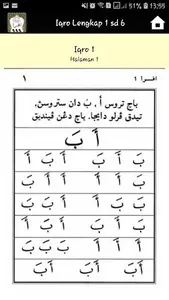 51% 13:55
Iqro Lengkap 1 sd 6
Iqro 1
Halaman 1
اقرا 1 ١
باچ تروس أَ , بَ دان ستروسڽ.
تيدق ڤرلو دأيجا. باچ دڠن ڤينديق
أَ بَ
أَ بَ أَ بَ أَ بَ
أَ أَ بَ بَ بَ أَ
أَ بَ بَ بَ أَ أَ
بَ أَ بَ أَ بَ أَ
أَ بَ أَ بَ بَ بَ
أَبَ أَبَ أَبَ